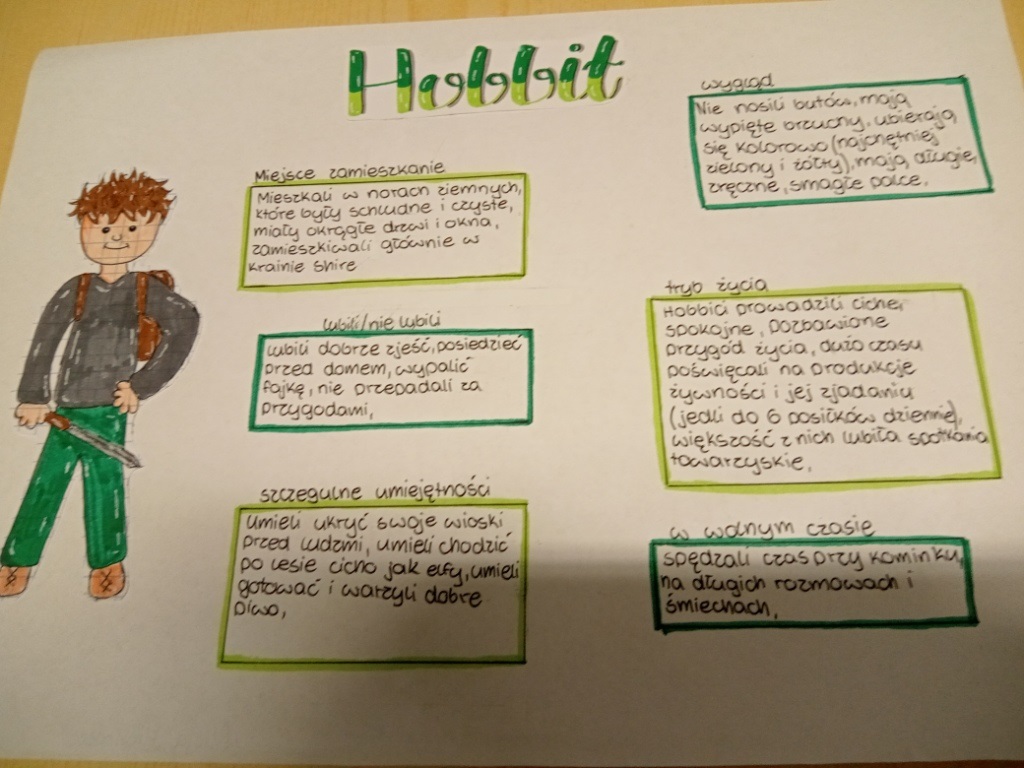 Hobbit
wygląd
Nie nosili butów, mają
wypięte brzuchy, ubierają
się kolorowo (najchętniej
zielony i żółty), mają długie,
zręczne, smagłe palce,
Miejsce zamieszkanie
Mieszkali w norach ziemnych,
które były schludne i czyste,
miały okrągłe drzwi i okna,
zamieszkiwali głównie w
krainie Shire
tryb życia
Hobbici prowadzili ciche,
spokojne, pozbawione
przygód życia, dużo czasu
poświęcali na produkcje
żywności i jej zjadaniu
(jedli do 6 posiłków dziennie),
większość z nich lubiła spotkania
towarzyskie,
lubili/nie lubili
Lubili dobrze zjeść, posiedzieć
przed domem, wypalić
fajkę, nie przepadali za
przygodami,
szczegulne umiejętności
Umieli ukryć swoje wioski
przed ludzmi, umieli chodzić
po lesie cicho jak elfy, umieli
gotować i warzyli dobre
piwo,
w wolnym czasie
spędzali czas przy kominku,
na długich rozmowach i
śmiechach,